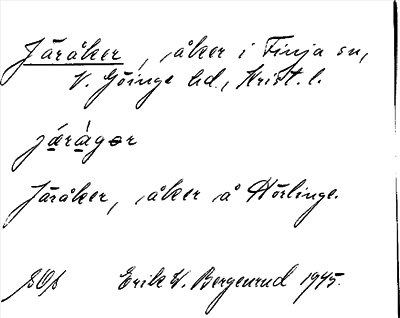 Järåker, åker i Finja sn,
V. Göinge hd., Krist. l.
járàgər
Järåker, åker å Hörlinge.
Erik W. Bergenrud 1945.